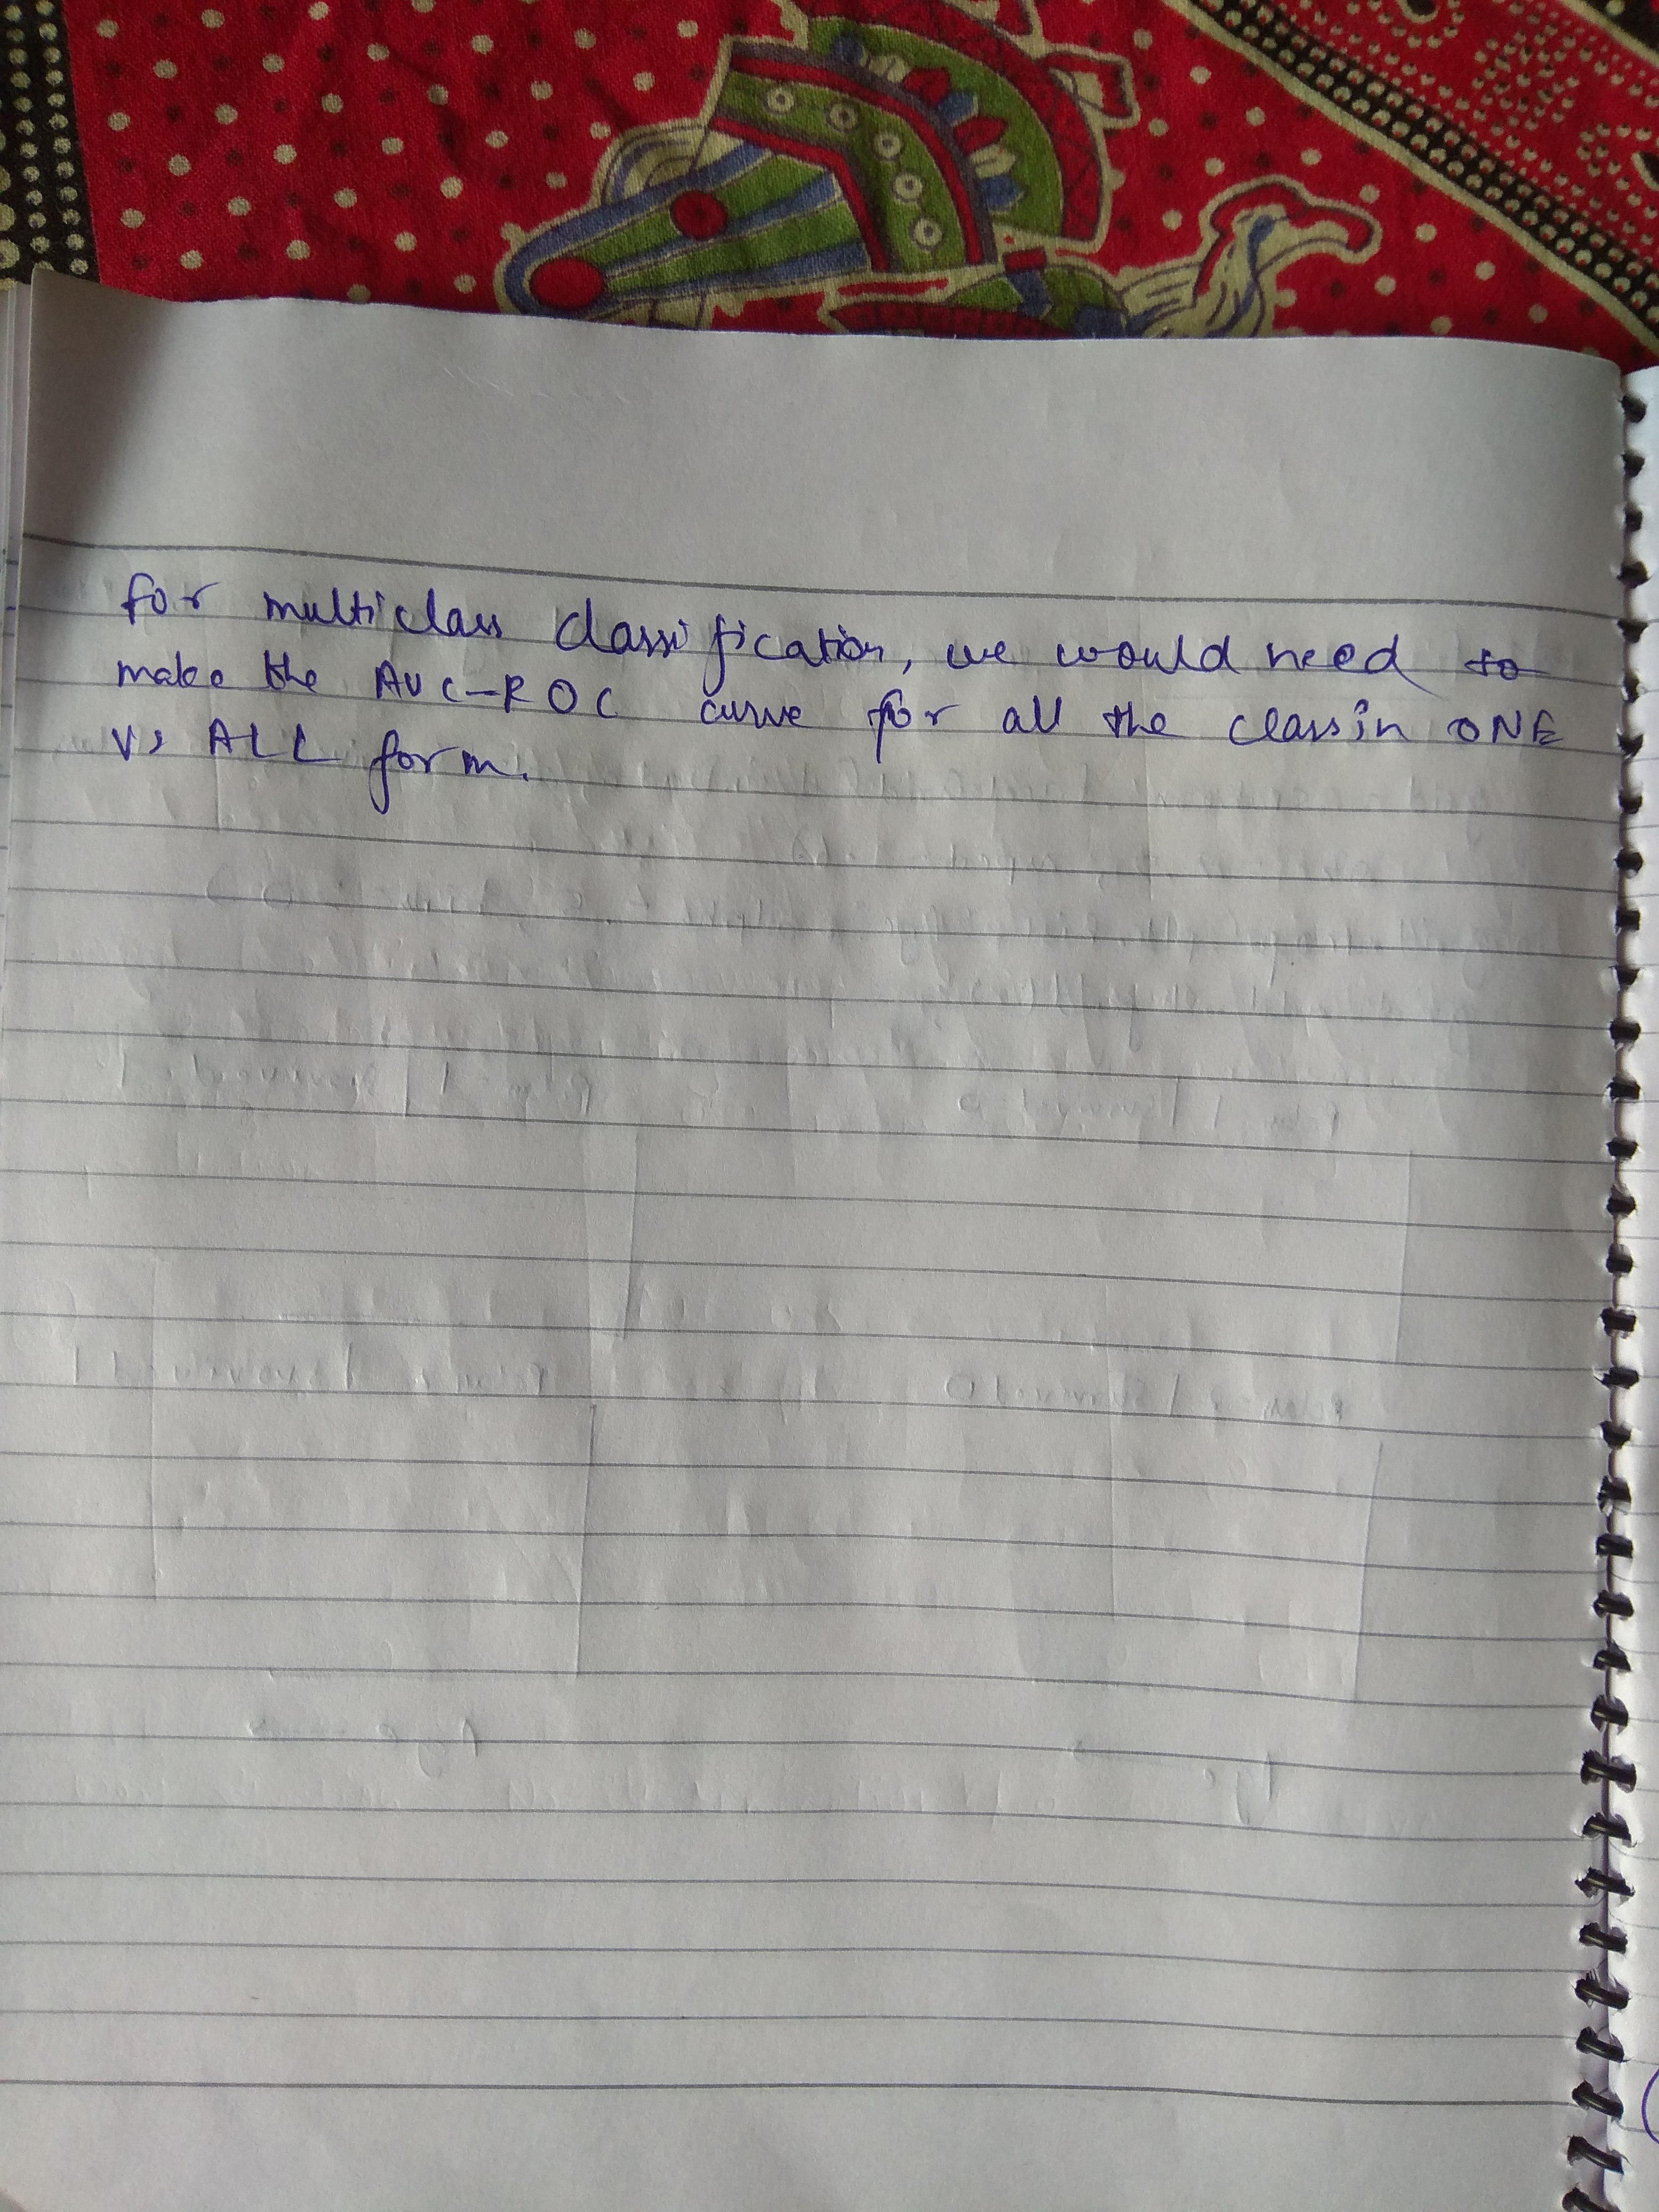 for multiclass classification, we would need to
make the AUC-ROC curve for all the class in ONE
vs ALL form.